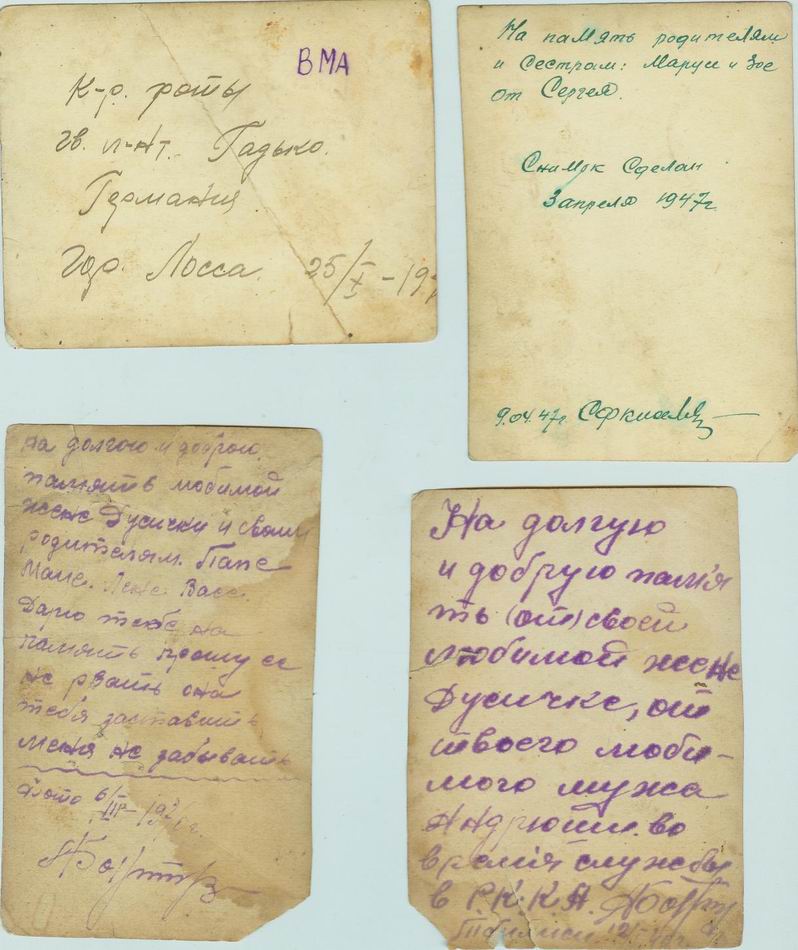 ВМА
К-р. роты
гв. л-нт. Гадько.
Германия
гор. Лосса. 25/X-19
На память родителям
и Сестрам: Марусе и Зое
от Сергея.
Снимок Сделан
3 апреля 1947г.
9.04.47г
на долгою и доброю
память любимой
жене Дусички и своим
родителям. Папе
Маме. Лене Васе.
Дарю тебе на
память прошу ее
не рвать она
тебя заставить
меня не забывать
фото 6/III-19
На долгую
и добрую памя
ть (от) своей
любимой жене
Дусичке, от
твоего люби-
мого мужа
Андрюши. во
время службы
в Р.К.К.А.
Тбилиси